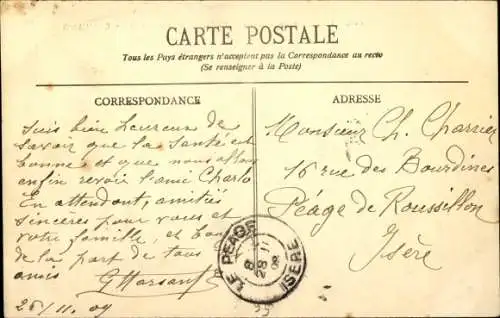 CARTE POSTALE
Tous les Pays étrangers n'acceptent pas la Correspondance au recto
(Se renseigner à la Poste)
CORRESPONDANCE
Suis bien heureux de
savoir que la santé est
bonne et que nous allons
enfin revoir l'ami Charlo
En attendant, amitiés
sincères pour vous et
votre famille, et bons
de la part de tous
amis
26/11.09
ADRESSE
Monsieur Ch. Charrier
16 rue des Bourdines
Péage de Roussillon
Isère
LE PEAGE
ISERE